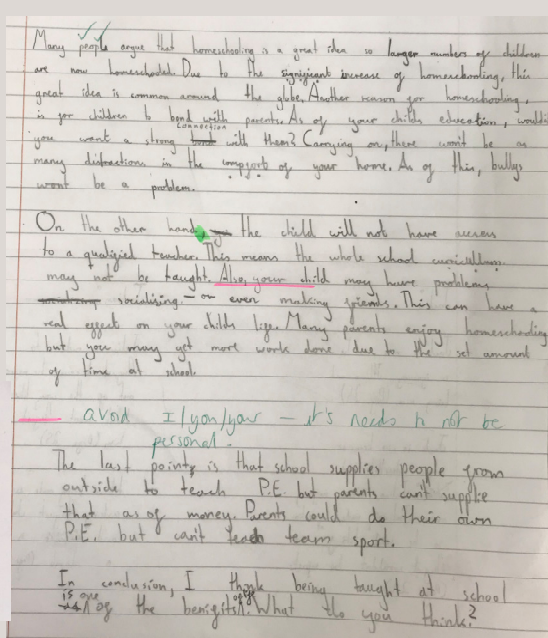 Many people argue that homeschooling is a great idea so larger numbers of children
are now homeschooled. Due to the significant increase of homeschooling, this
great idea is common around the globe. Another reason for homeschooling,
is for children to bond with parents. As of your childs education, would
connection
you want a strong bond with them? Carrying on, there won't be as
many distractions in the comfort of your home. As of this, bullys
wont be a problem.
On the other hand, the child will not have access
to a qualified teacher. This means the whole school curiculum
may not be taught. Also, your child may have problems
socialising or even making friends. This can have a
real effect on your childs life. Many parents enjoy homeschooling
but you may get more work done due to the set amount
of time at school.
avoid I/you/your – it's needs to not be
personal.
The last pointy is that school supplies people from
outside to teach P.E. but parents can't supplie
that as of money. Parents could do their own
P.E. but can't teach team sport.
In conclusion, I think being taught at school
is one
of the benifits. What do you think?